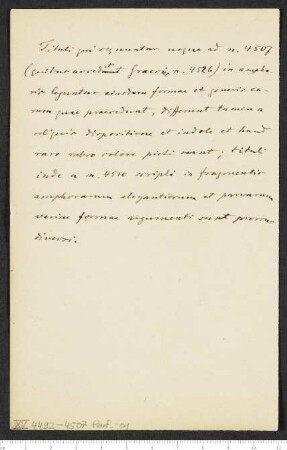 Tituli qui sequuntur usque ad n. 4507
(quibus accedunt Graeci n. 4526) in ampho-
ris leguntur eiusdem formae et generis ea-
rum quae praecedunt, differunt tamen a
reliquis dispositione et indole et haud
raro rubro colore picti sunt; tituli
inde a n. 4510 scripti in fragmentis
amphorarum elegantiorum et parvarum
variae formae argumenti sunt prorsus
diversi.
XV 4492-4507